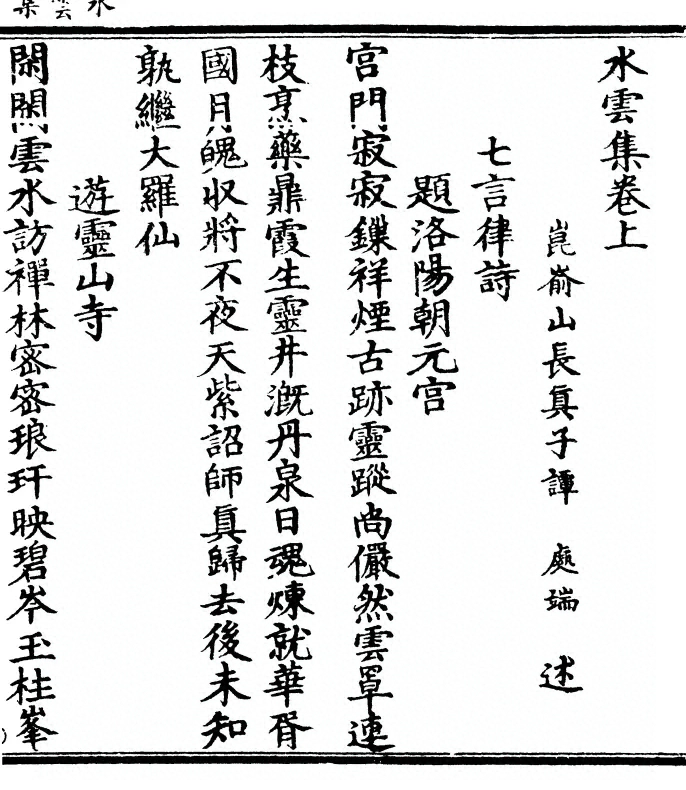 水雲集卷上
崑崳山長眞子譚 處端 述
七言律詩
題洛陽朝元宫
宫門寂寂鏁祥煙古跡靈蹤尚儼然雲罩連
枝烹藥鼎霞生靈井溉丹泉日魂煉就華胥
國月魄収將不夜天紫詔師眞歸去後未知
孰繼大羅仙
遊靈山寺
閑閑雲水訪禪林密密琅玕映碧岑玉柱峯